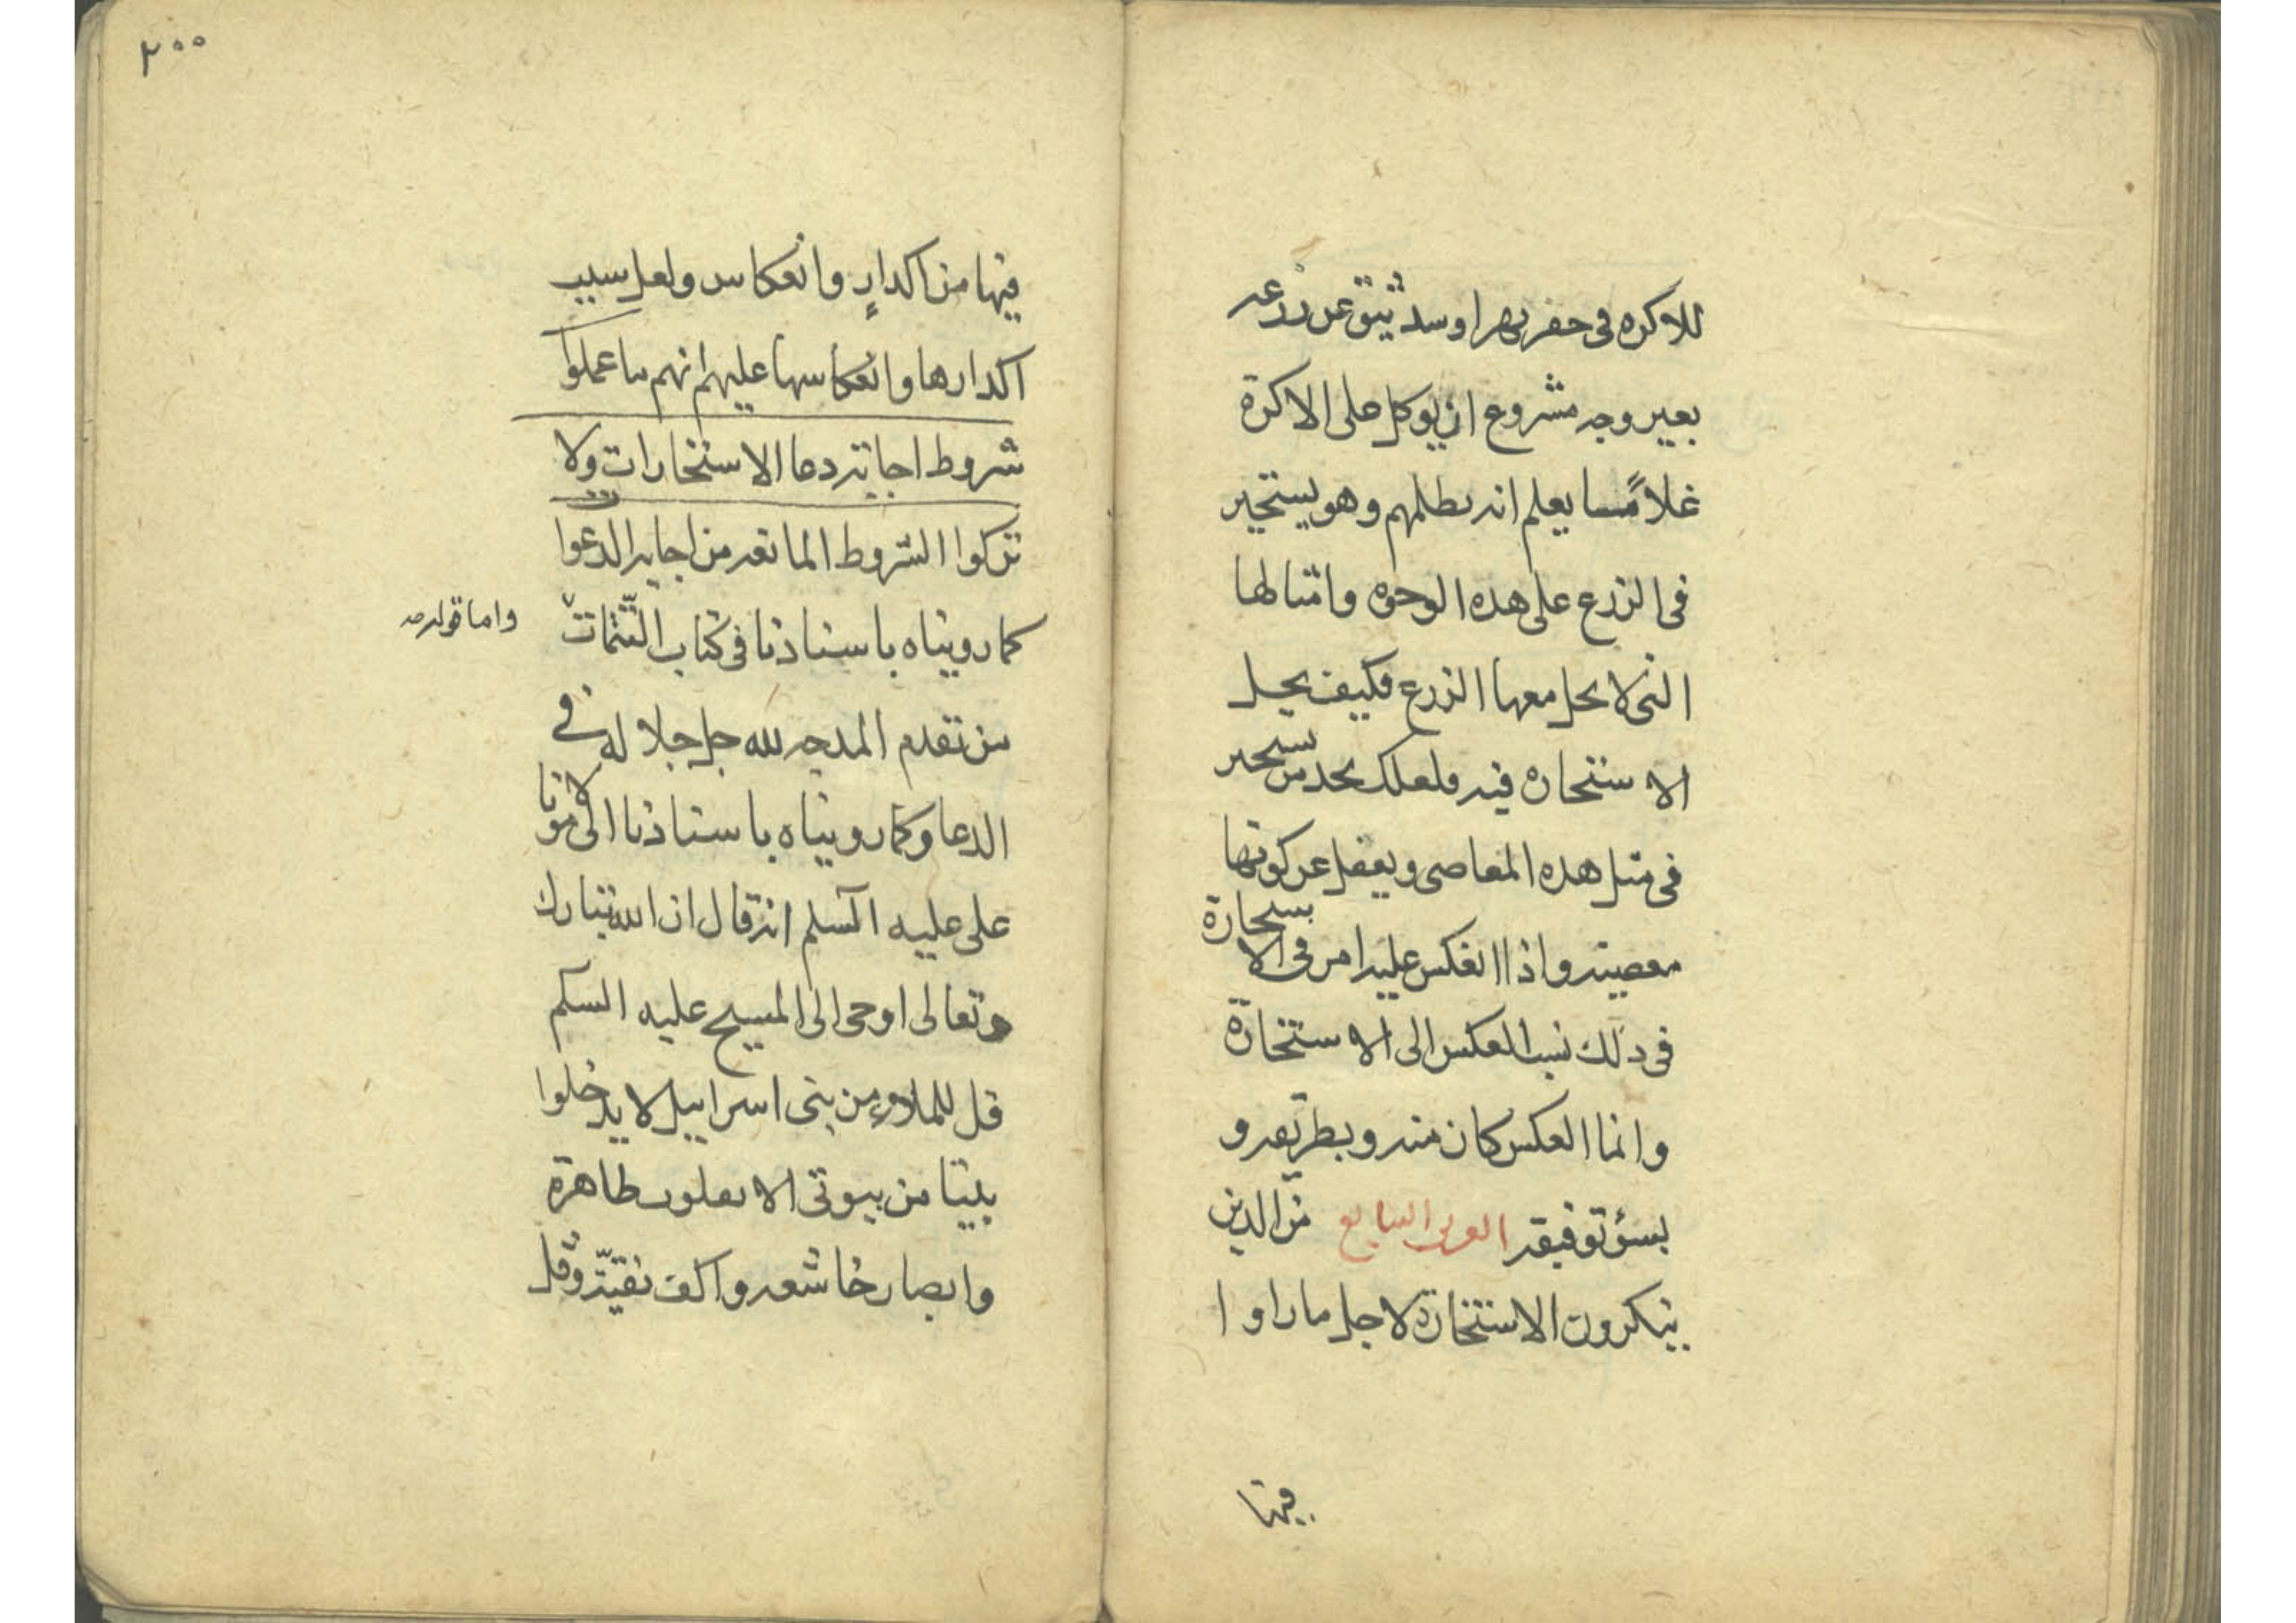 للاكره فى حفر نهر او سد بثق عن زرعه
بغير وجه مشروع او يوكل على الاكرة
غلامًا يعلم انه يظلمهم وهو يستخير
فى الزرع على هذه الوجوه وامثالها
التى لا يحل معها الزرع فكيف يحل
الاستخاره فيه ولعلك تجد من يستخير
فى مثل هذه المعاصى ويغفل عن كونها
معصيته واذا انعكس عليه امر فى الاستخارة
فى ذلك نسب العكس الى الاستخارة
وانما العكس كان منه وبطريقه و
بسؤ توفيقه الفريق السابع من الذين
ينكرون الاستخارة لاجل ما راوا
فيها
٢٠٠
فيها من اكدارٍ وانعكاس ولعل سبب
اكدارها وانعكاسها عليهم انهم ما عملوا
شروط اجابته دعا الاستخارات ولا
تركوا الشروط المانعه من اجابه الدعوات
كما رويناه باسنادنا فى كتاب التتمات
واما قوله
من تقدم المدحه لله جل جلاله فى
الدعا وكما رويناه باسنادنا الى مولانا
على عليه السلم انه قال ان الله تبارك
وتعالى اوحى الى المسيح عليه السلم
قل للملاء من بنى اسرايل لا يدخلوا
بيتا من بيوتى الا بقلوب طاهرة
وابصار خاشعه واكف نقيّة وقل